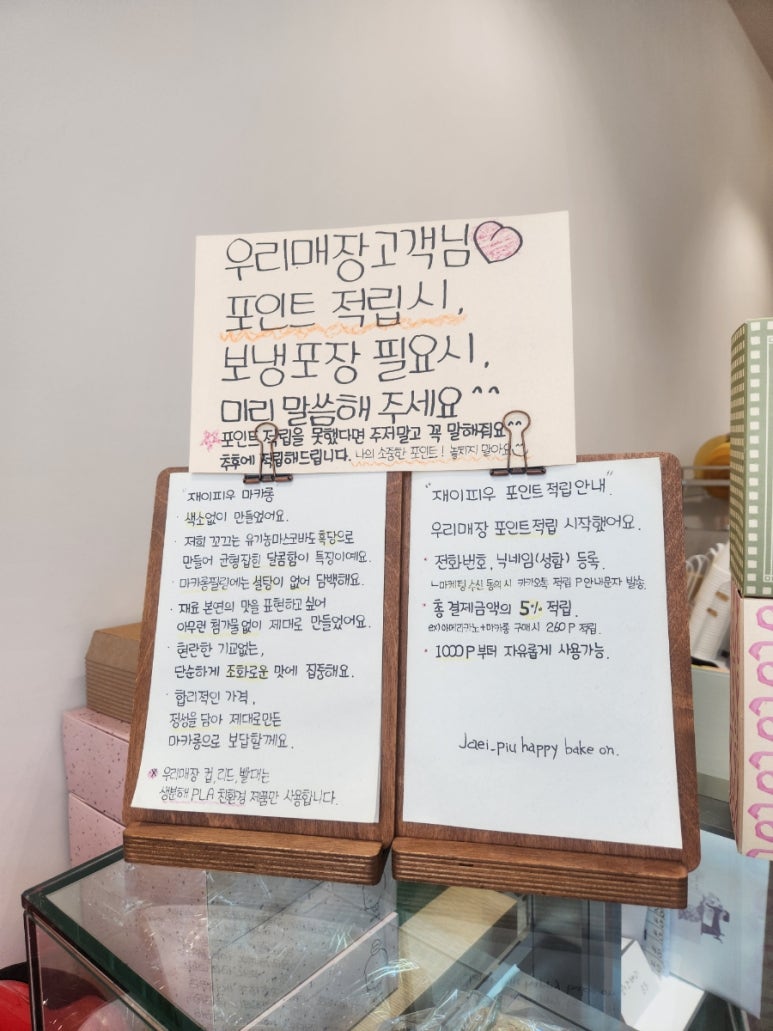 우리매장고객님
포인트 적립시,
보냉포장 필요시,
미리 말씀해 주세요 ^^
포인트적립을 못했다면 주저말고 꼭 말해줘요^^
추후에 적립해드립니다. 나의 소중한 포인트! 놓치지 말아요
재이피우 마카롱
· 색소없이 만들었어요.
· 저희 꼬끄는 유기농마스코바도흑당으로
만들어 균형잡힌 달콤함이 특징이예요.
· 마카롱필링에는 설탕이 없어 담백해요.
· 재료 본연의 맛을 표현하고 싶어
아무런 첨가물없이 제대로 만들었어요.
· 현란한 기교없는,
단순하게 조화로운 맛에 집중해요.
· 합리적인 가격,
정성을 담아 제대로만든
마카롱으로 보답할게요.
* 우리매장 컵,리드,빨대는
생분해 PLA 친환경 제품만 사용합니다.
"재이피우 포인트적립안내"
우리매장 포인트적립 시작했어요.
· 전화번호, 닉네임(성함) 등록.
ㄴ마케팅 수신 동의 시 카카오톡 적립 P 안내문자 발송.
* 총 결제금액의 5% 적립.
ex)아메리카노+마카롱 구매시 260 P 적립.
· 1000P부터 자유롭게 사용가능.
Jaei_piu happy bake on.